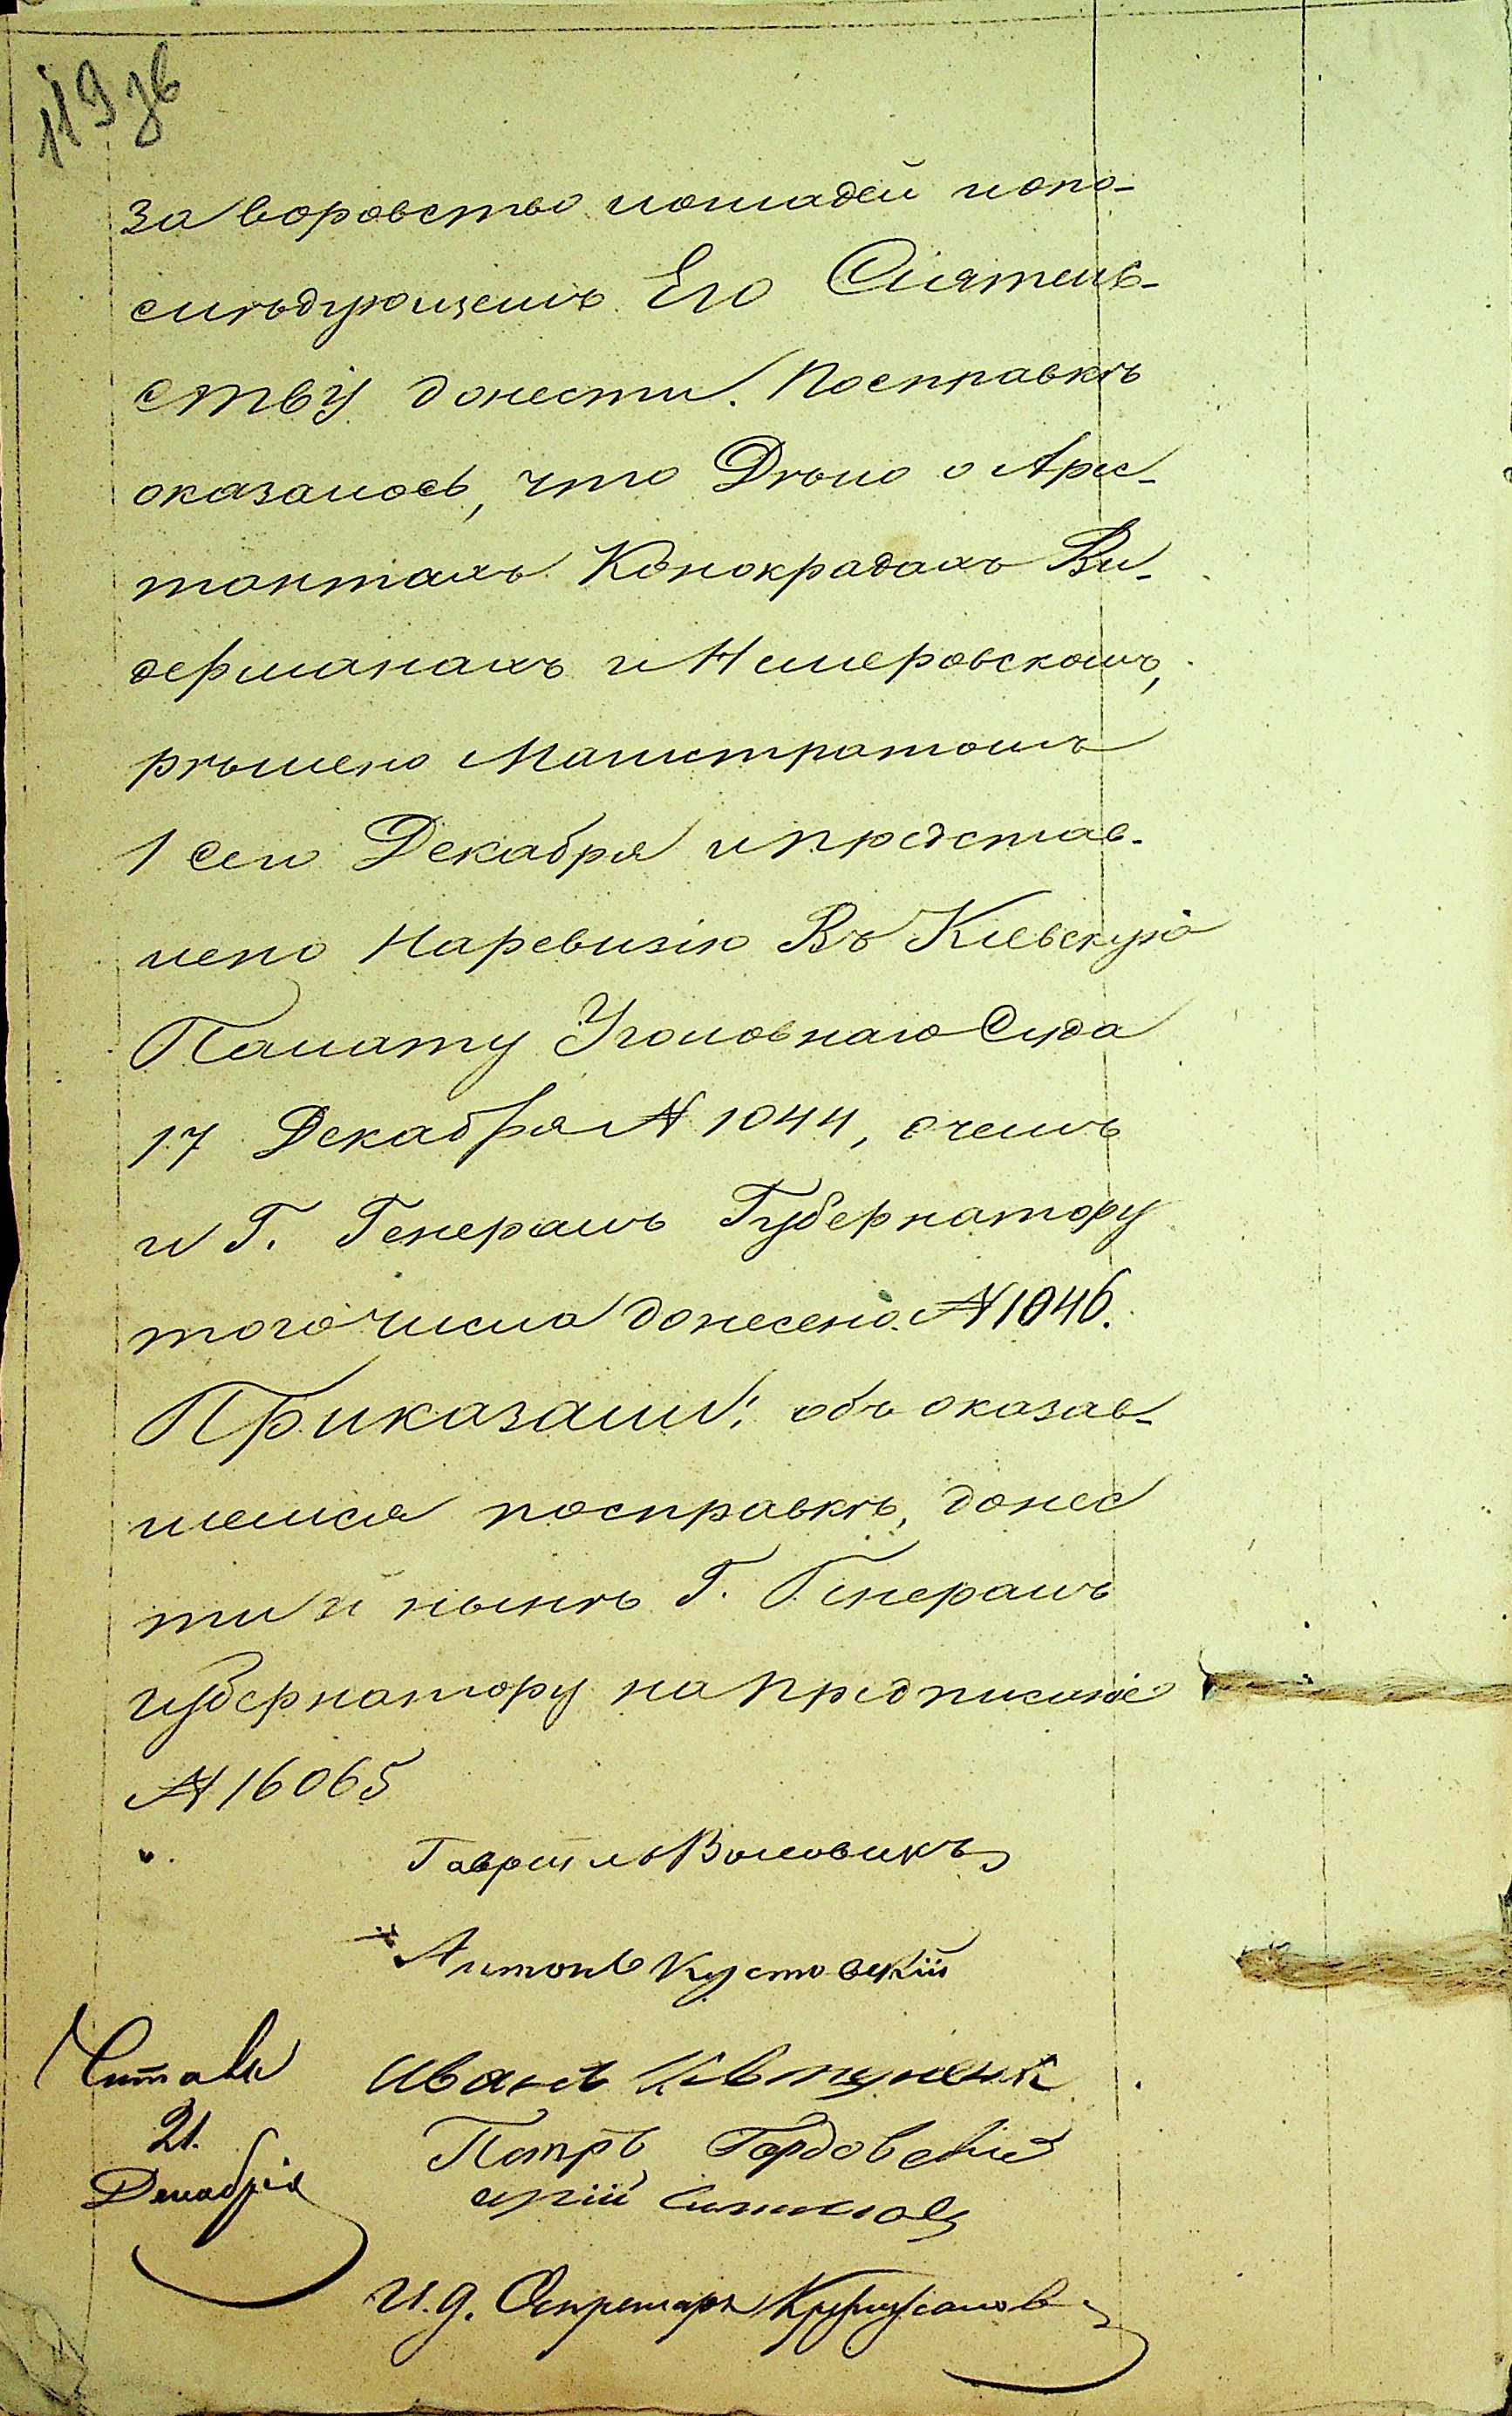 119 зв
за воровство лошадей и опо-
слѣдующемъ Его Сіятель-
ству донести. Посправкѣ
оказалось, что Дѣло о Аре-
тантахъ Конокрадахъ Ви-
дерманахъ и Немеровскомъ,
рѣшено Магистратомъ
1 сего Декабря и представ-
лено Наревизію Въ Кіевскую
Палату Уголовнаго Суда
17 Декабря № 1044, очемъ
и Г. Генералъ Губернатору
того числа донесено № 1046.
Приказали: объ оказав-
шемся посправкѣ, донес
ти и нынѣ Г. Генералъ
губернатору на предписаніе
№ 16065
Гавріилъ Воловикъ
Антонъ Кустовскій
Читалъ Иванъ
21. Петръ Гордовскій
Декабря
И.д. Секретаря